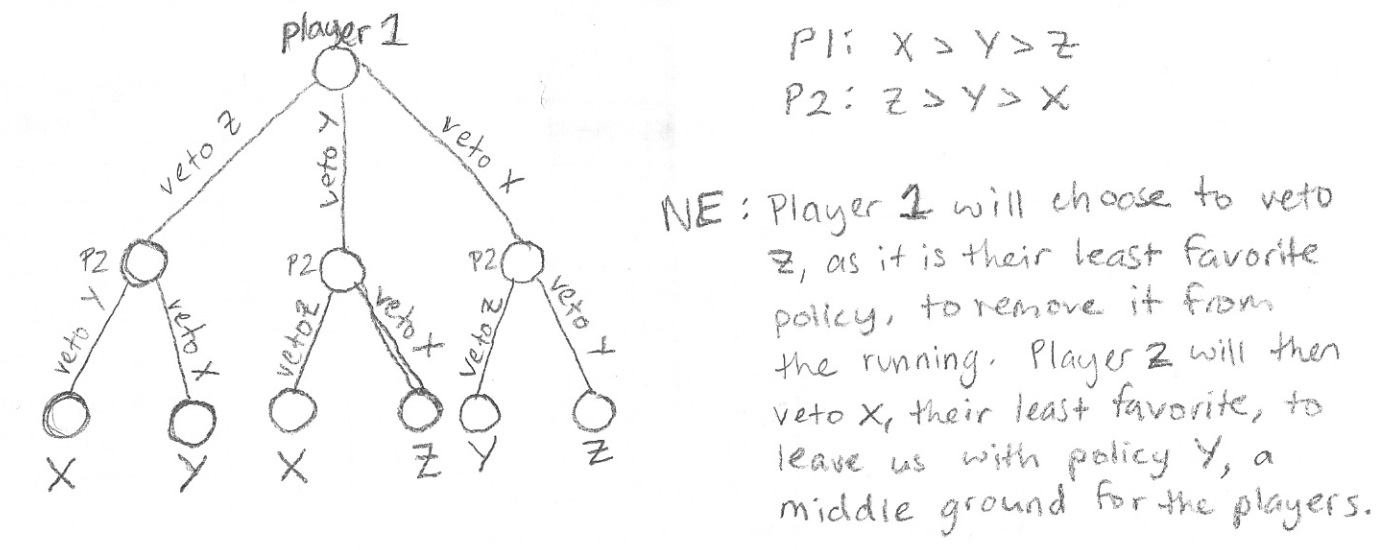 player 1
veto Z
veto Y
veto X
P2
P2
P2
veto Y
veto X
veto Z
veto X
veto Z
veto Y
X
Y
X
Z
Y
Z
P1: X > Y > Z
P2: Z > Y > X
NE: Player 1 will choose to veto
Z, as it is their least favorite
policy, to remove it from
the running. Player 2 will then
veto X, their least favorite, to
leave us with policy Y, a
middle ground for the players.